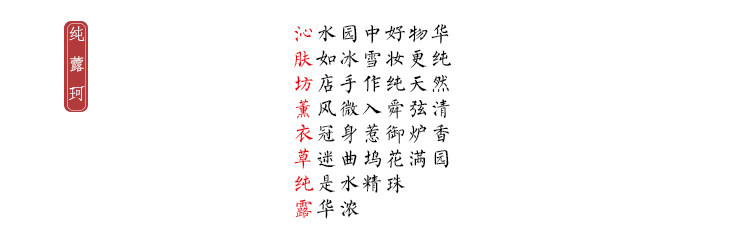 纯珂
沁水园中好物华
肤如冰雪妆更纯
坊店手作纯天然
薰风微入舜弦清
衣冠身惹御炉香
草迷曲坞花满园
纯是水精珠
露华浓